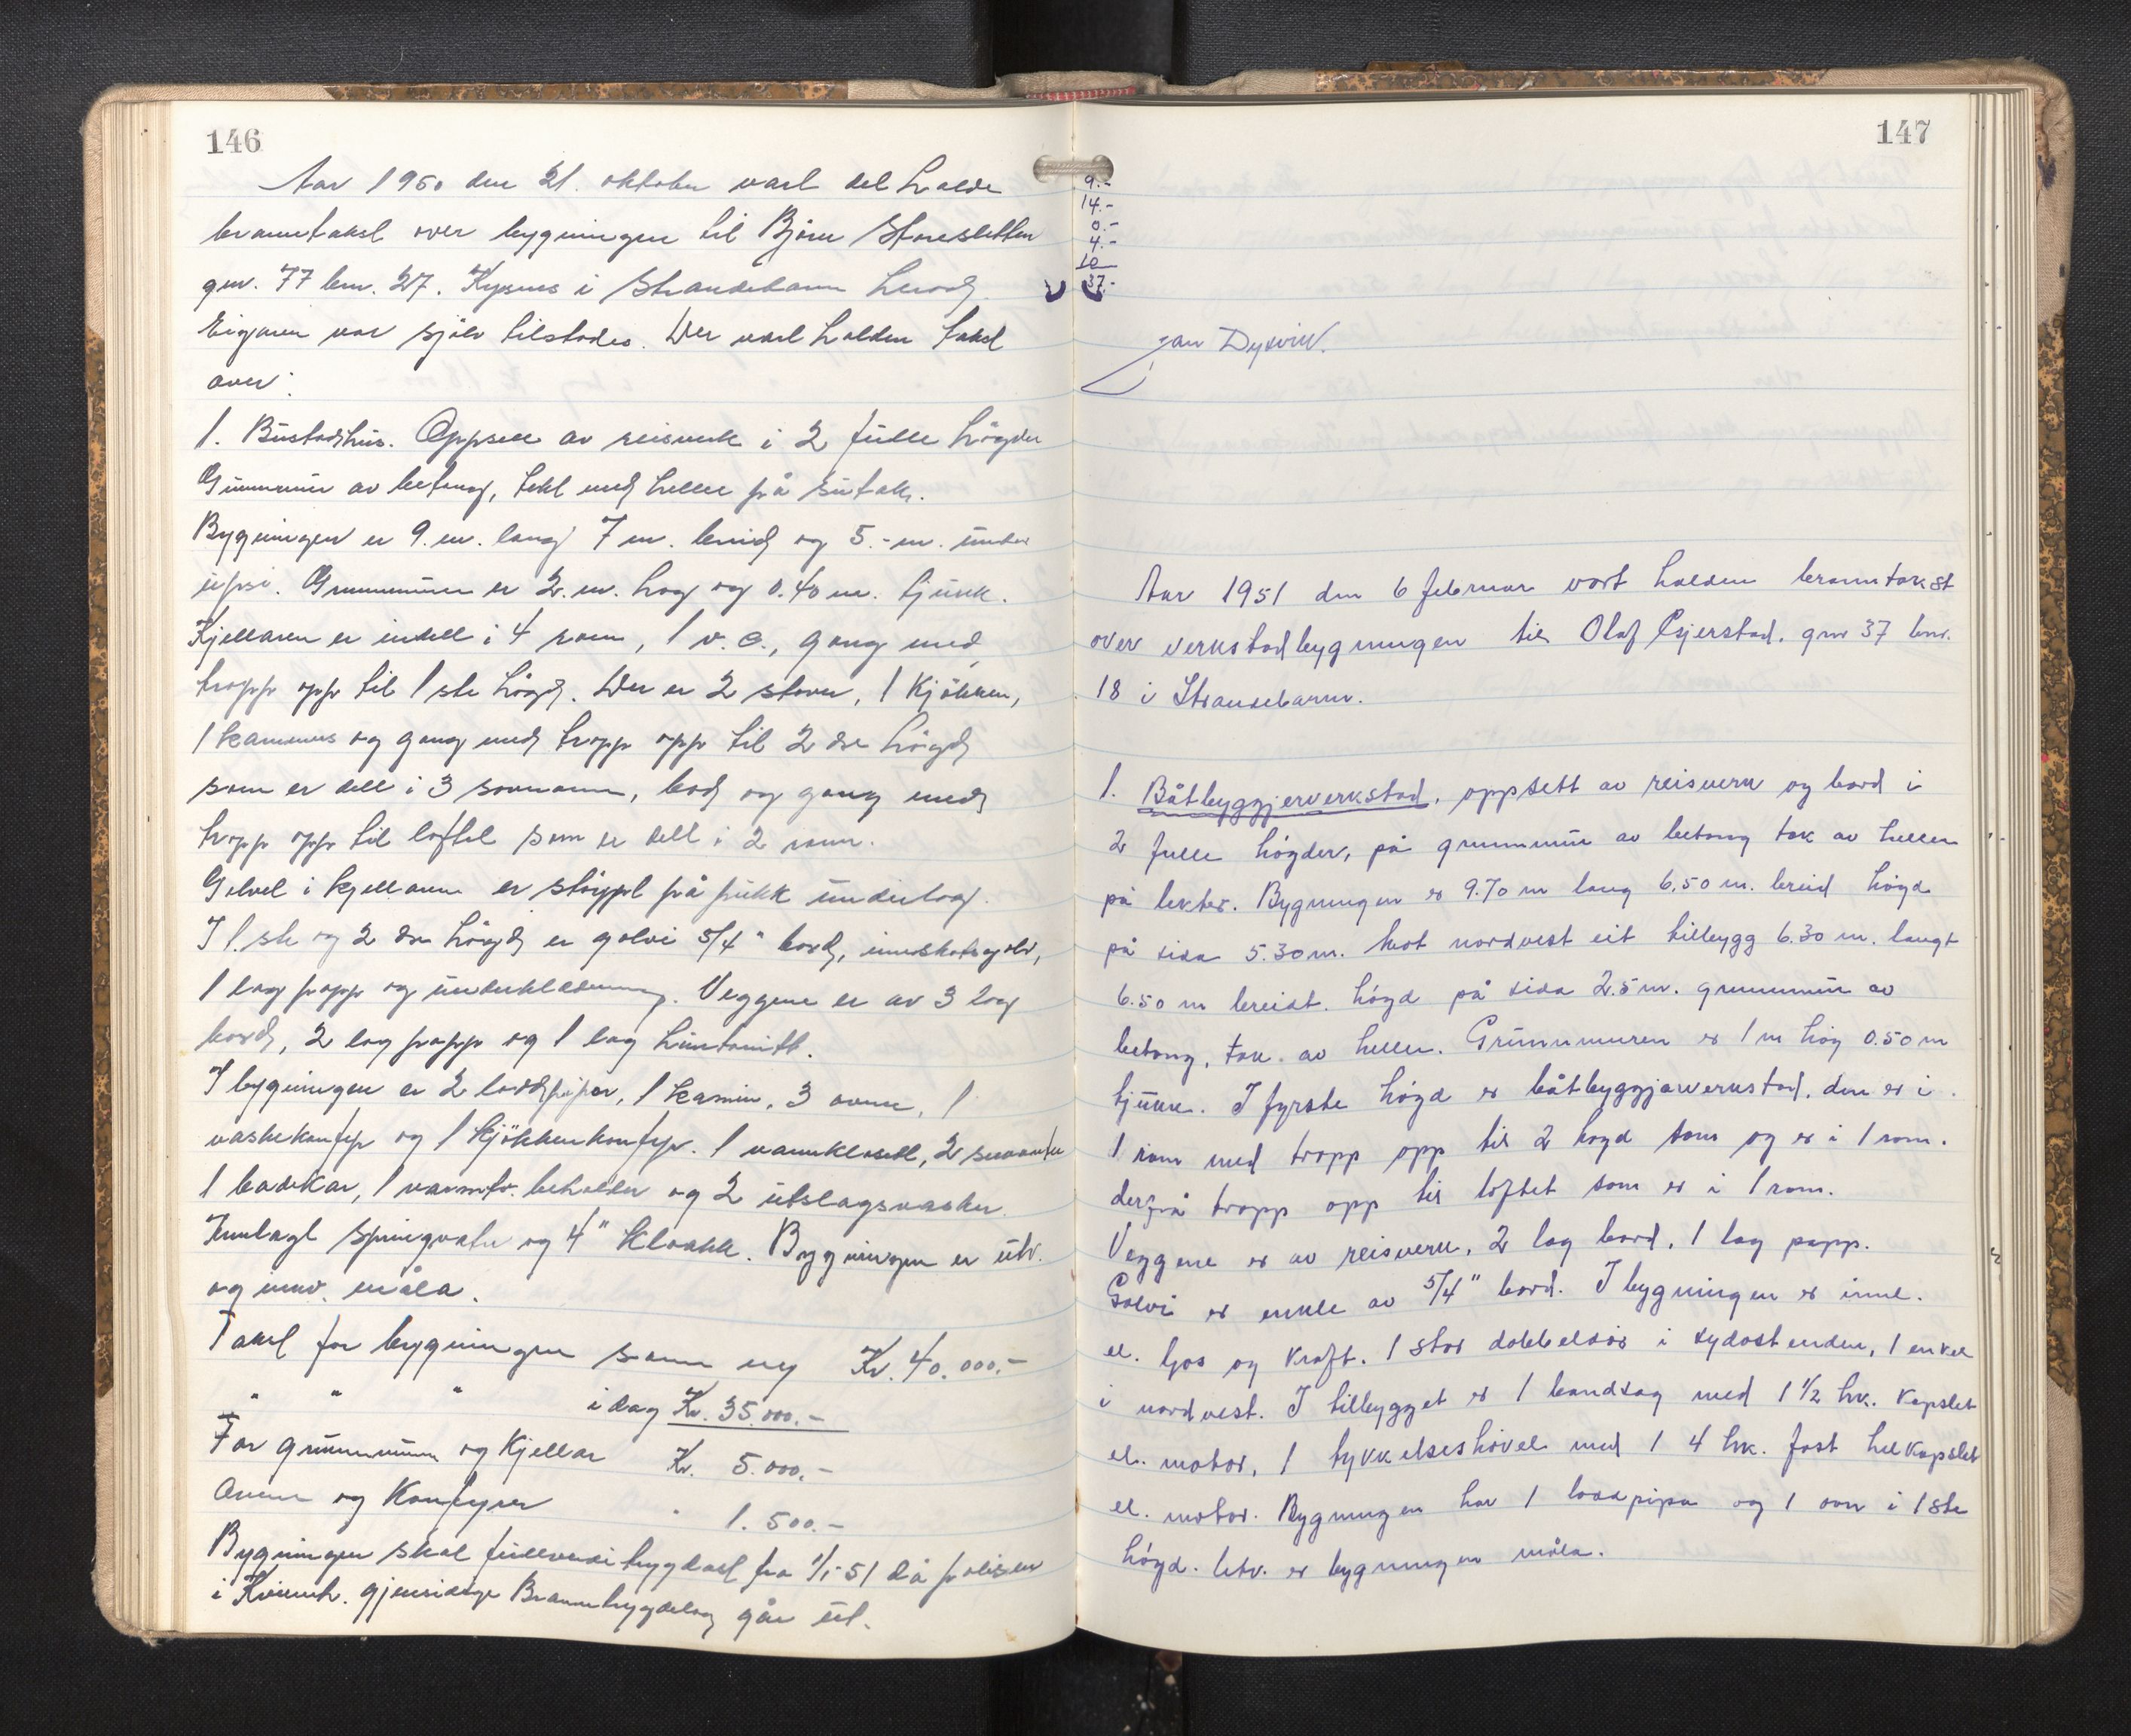 146
Aar 1950 den 21. oktober vart det halde
branntakst over bygningen til Björn Storesletten
gnr. 77 bnr. 27. Kysnes i Strandebarm herad.
Eigaren var sjölv tilstades. Der vart halden takst
over:
1. Bustadhus. Oppsett av reisverk i 2 fulle högder
Grunnmur av betong, tekt med heller på sutak.
Bygningen er 9. m. lang 7 m. breid og 5.- m. under
upsi. Grunnmuren er 2. m. høg og 0.40 m. tjukk.
Kjellaren er indelt i 4 rom, 1 v. c., gang med
tropp opp til 1 ste högd. Der er 2 stover, 1 Kjökken,
1 kammers og gang med tropp opp til 2 dre högd
som er delt i 3 soverom, bod og gang med
tropp opp til loftet som er delt i 2 rom.
Golvet i kjellaren er støypt på pukk underlag.
I 1. ste og 2 dre högd er golvi 5/4" bord, innskotsgolv,
1 lag papp og underkledning. Veggene er av 3 lag
bord, 2 lag papp og 1 lag huntonitt.
I bygningen er 2 loddpipor, 1 kamin, 3 ovnar, 1
vaskekomfyr og 1 kjökkenkomfyr. 1 vannklosett, 2 servantar
1 badekar, 1 varmtv. beholder og 2 utslagsvasker.
Innlagt springvatn og 4" kloakk. Bygningen er utv.
og innv. måla.
Takst for bygningen som ny Kr. 40.000.-
" " " i dag Kr. 35.000.-
For grunnmuren og Kjellar Kr. 5.000.-
Ovner og Komfyrer " 1.500.-
Bygningen skal fullverdi trygdast fra 1/1-51 då polisen
i Kvinnh. gjensidige Branntrygdelag går ut.
147
9.-
14.-
0.-
4.-
10
37.-
Jan Dysvik.
Aar 1951 den 6 februar vart halden branntakst
over verkstadbygningen til Olaf Gjerstad. gnr 37 bnr.
18 i Strandebarm.
1. Båtbyggjerverkstad, oppsett av reisverk og bord i
2 fulle högder, på grunnmur av betong tak av heller
på lekter. Bygningen er 9.70 m lang 6.50 m. breid högd
på sida 5.30 m. Mot nordvest eit tilbygg 6.30 m. langt
6.50 m breidt. högd på sida 2.5 m. grunnmur av
betong, tak av heller. Grunnmuren er 1 m høg 0.50 m
tjukk. I fyrste högd er båtbyggjarverkstad, den er i
1 rom med tropp opp til 2 högd som og er i 1 rom.
derfrå tropp opp til loftet som er i 1 rom.
Veggene er av reisverk, 2 lag bord, 1 lag papp.
Golvi er enkle av 5/4" bord. I bygningen er innl.
el. ljos og Kraft. 1 stor dobbeldör i sydostenden, 1 enkel
i nordvest. I tilbygget er 1 bandsag med 1 1/2 hk. kapslet
el. motor, 1 tykkelseshövel med 1 4 hk. fast helkapslet
el. motor. Bygningen har 1 loddpipa og 1 ovn i 1ste
högd. Utv. er bygningen måla.